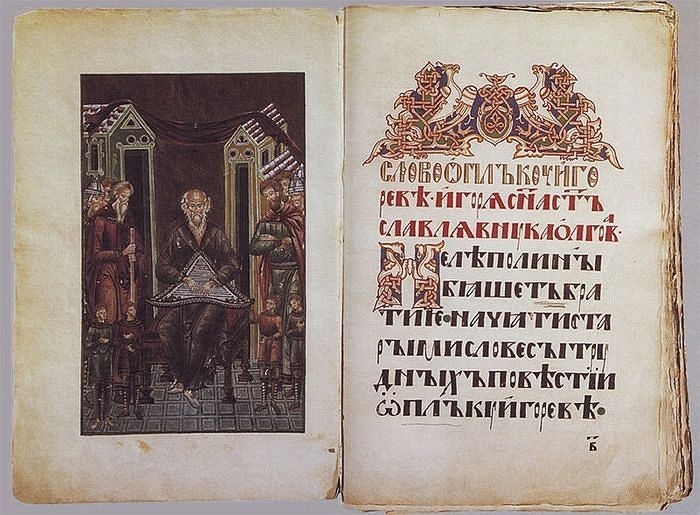 СЛОВОѾПЛЪКОУИГО
РЕВѢ·ИГОРѦСН҃АСТЪ
СЛАВЛѦВНꙊКАОЛГОВА·
НЕЛѢПОЛИНЫ
БѦШЕТЪБРА
ТИІЕ·НАЧѦТИСТА
РЫМИСЛОВЕСЫТРꙊ
ДНЫХЪПОВѢСТІИ
ѾПЛЪКꙊИГОРЕВѢ·
В҃